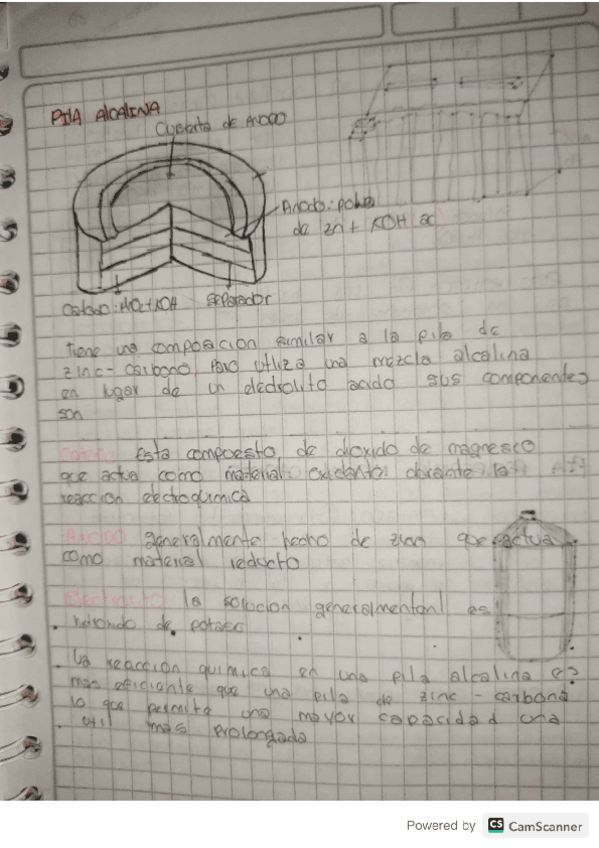 PILA AlCALINA
Cubierta de ANODO
Anodo: polvo
de zn + KOH ac
Catodo: MO2 + KOH
separador
tiene una composicion similar a la pila de
zinc - carbono, pero utiliza una mezcla alcalina
en lugar de un electrolito acido sus componentes
son
Catodo Esta compuesto, de dioxido de magnesco
que actua como material oxidante durante la
reaccion electroquimica
Anodo generalmente hecho de zinc que actua
como material reducto
Electrolito la solucion generalmentanl es
hidroxido de potasc
La reacción quimica en una pila alcalina e?
mas eficiente que una pila de zinc - carbono
lo que permite una mayor capacidad una
util mas prolongada
Powered by CS CamScanner